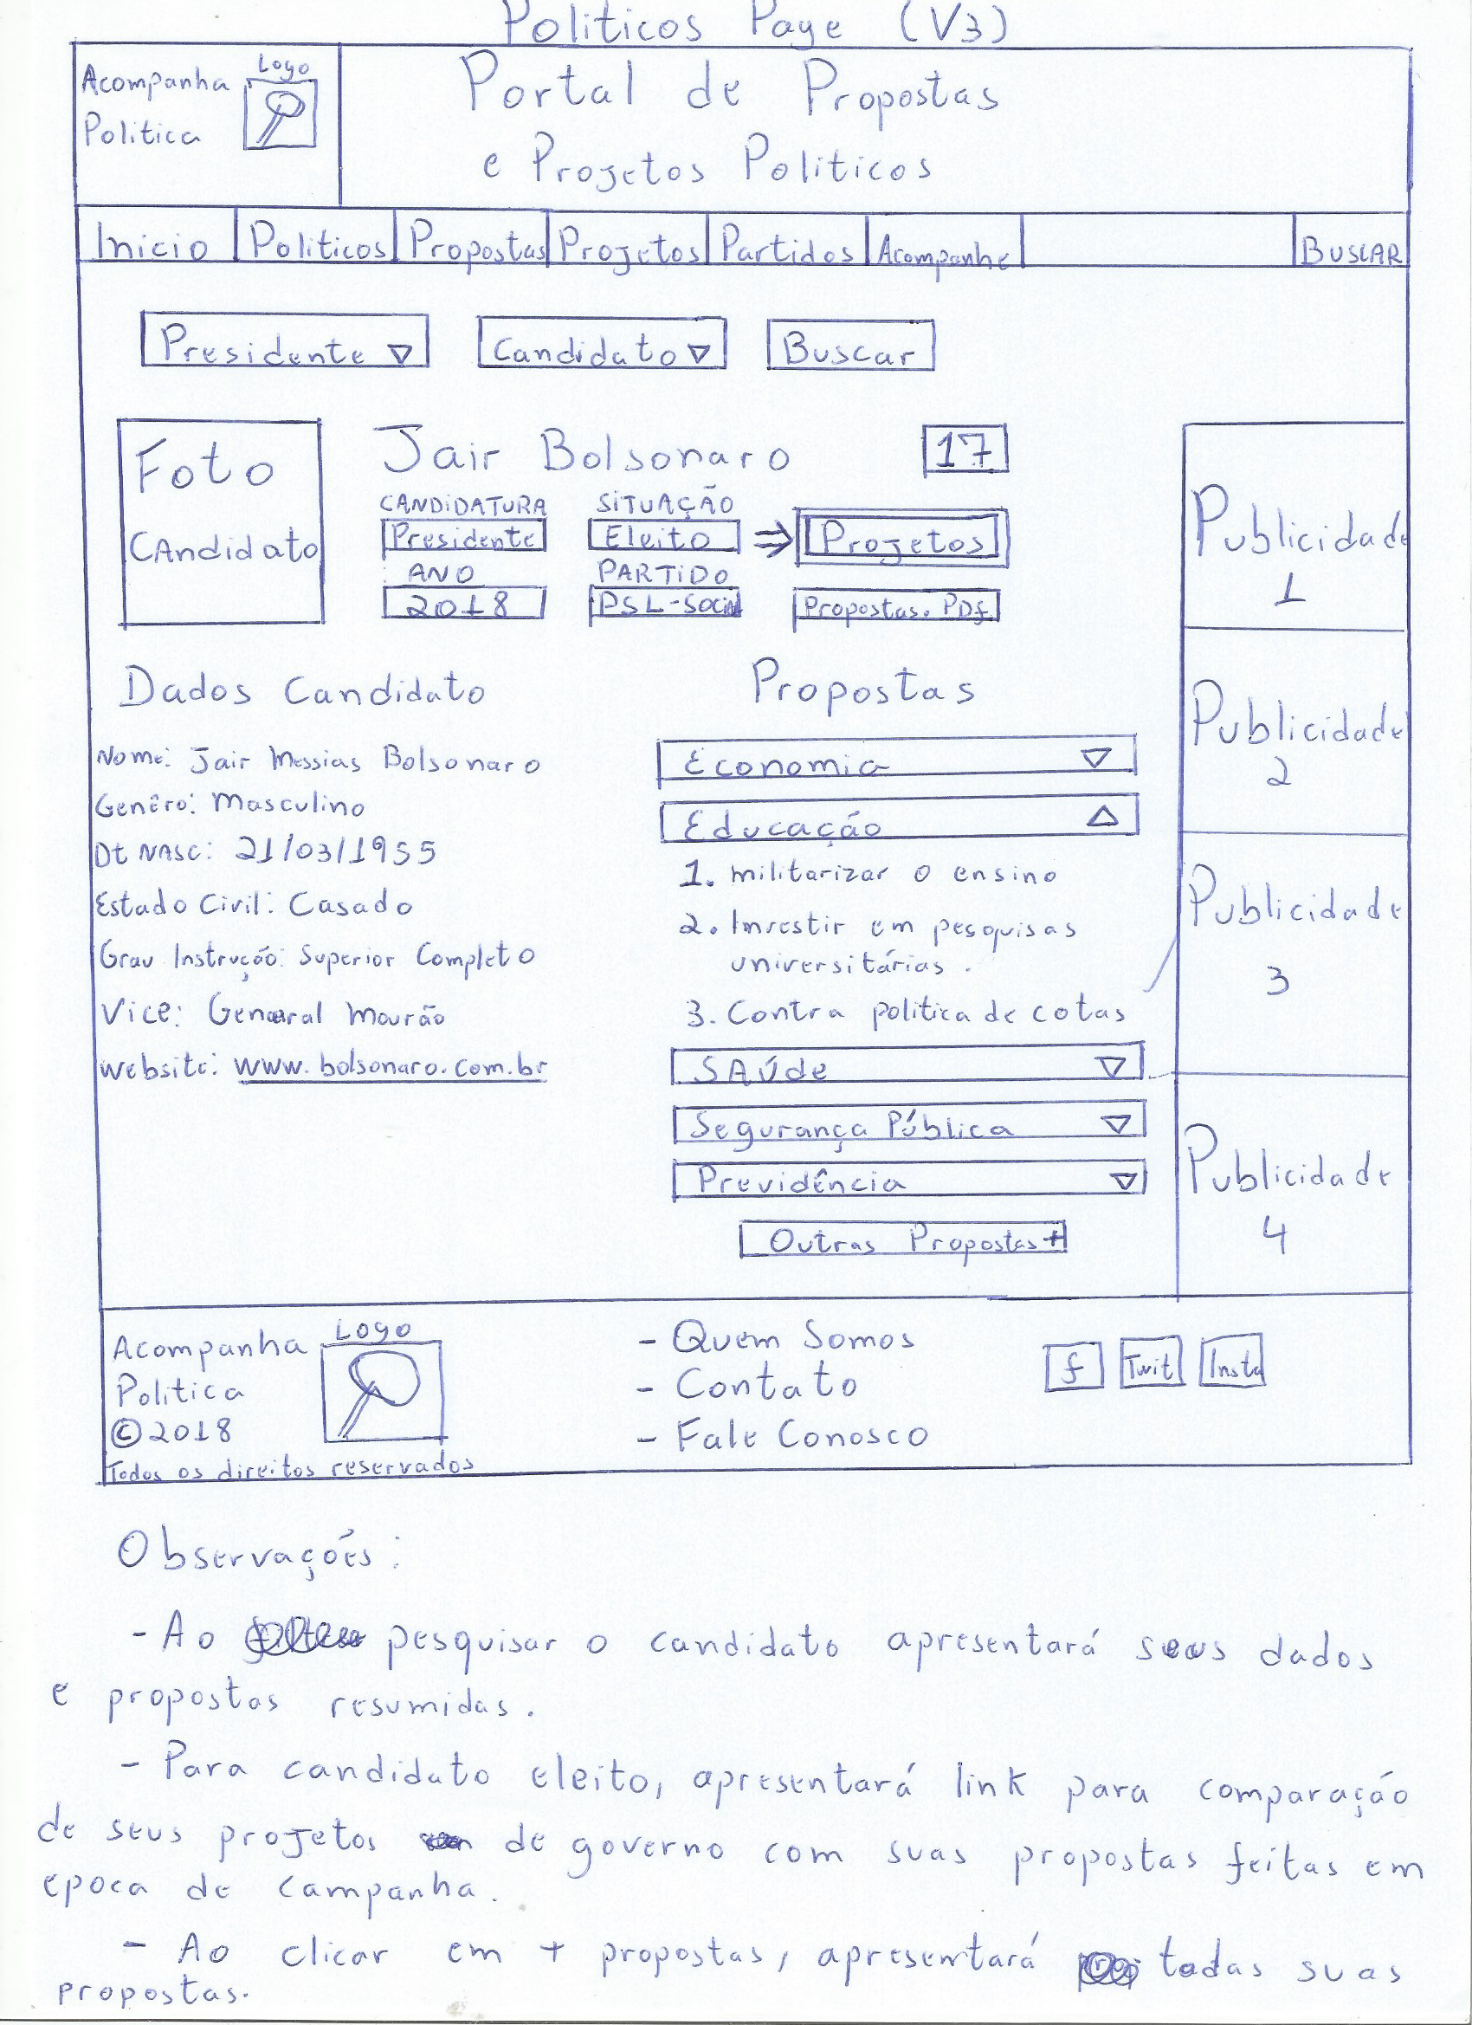 Politicos Page (V3)
Acompanha
Politica
Logo
Portal de Propostas
e Projetos Politicos
Inicio Politicos Propostas Projetos Partidos Acompanhe BUSCAR
Presidente Candidato Buscar
Foto
CAndidato
Jair Bolsonaro 17
CANDIDATURA SITUAÇÃO
Presidente Eleito ⇒ Projetos
ANO PARTIDO
2018 PSL-Social Propostas.PDf
Publicidade
1
Publicidade
2
Publicidade
3
Publicidade
4
Dados Candidato
Nome: Jair Messias Bolsonaro
Genêro: Masculino
Dt NASC: 21/03/1955
Estado Civil: Casado
Grau Instrução: Superior Completo
Vice: General Mourão
Website: www.bolsonaro.com.br
Propostas
Economia
Educação
1. militarizar o ensino
2. Investir em pesquisas
universitárias.
3. Contra politica de cotas
SAúde
Segurança Pública
Previdência
Outras Propostas +
Acompanha
Politica
©2018
Todos os direitos reservados
Logo
- Quem Somos
- Contato
- Fale Conosco
f Twit Insta
Observações:
- Ao pesquisar o candidato apresentará seus dados
e propostas resumidas.
- Para candidato eleito, apresentará link para comparação
de seus projetos de governo com suas propostas feitas em
epoca de campanha.
- Ao clicar em + propostas, apresentará todas suas
propostas.